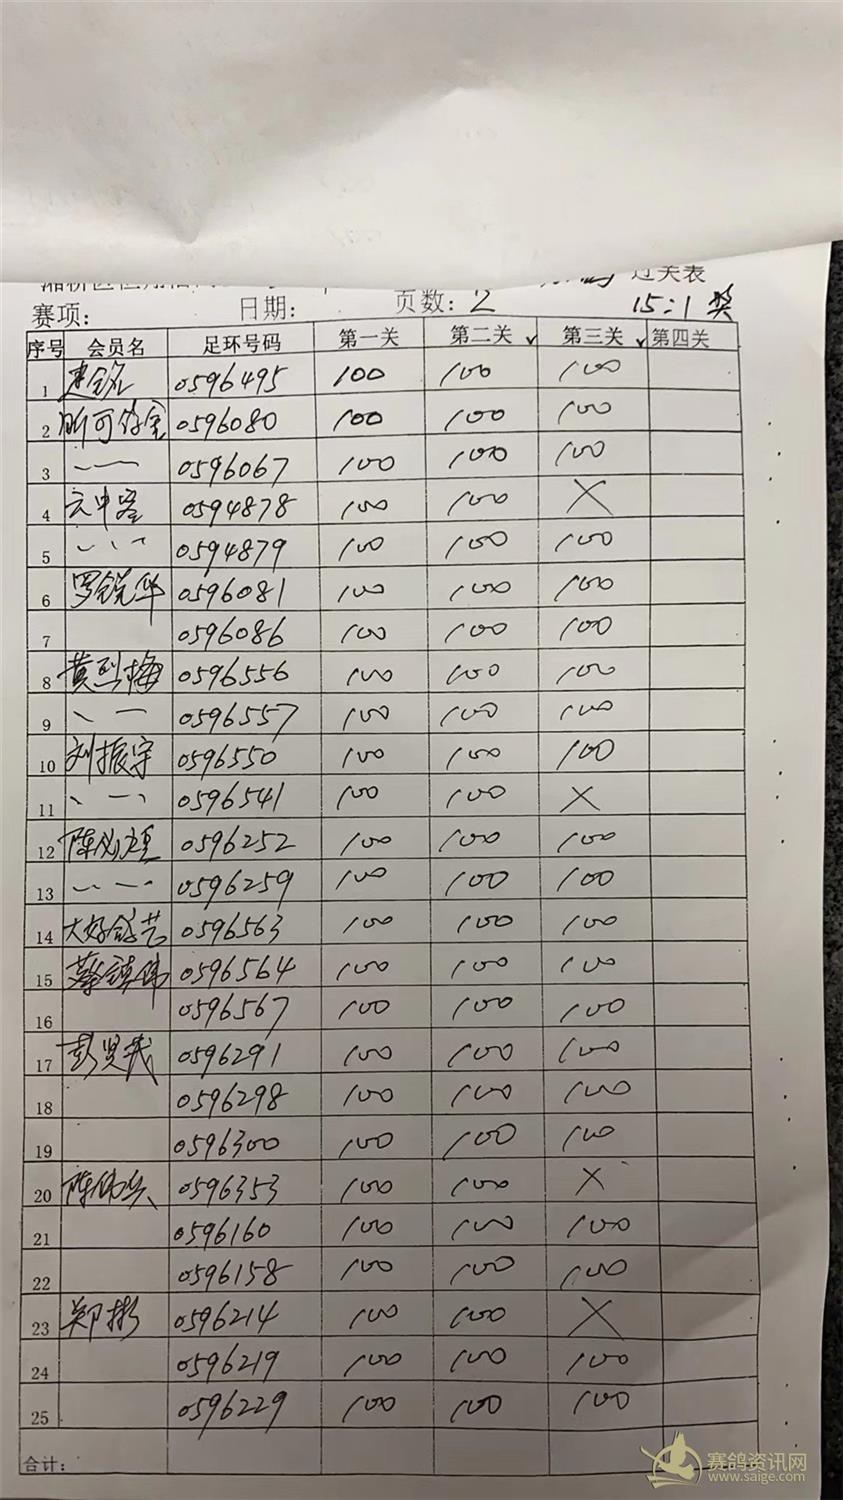 过关表
赛项: 日期: 页数: 2 15:1 奖
序号 会员名 足环号码 第一关 第二关 ✓ 第三关 ✓ 第四关
1 0596495 100 100 100
2 0596080 100 100 100
3 0596067 100 100 100
4 0594878 100 100 ×
5 0594879 100 100 100
6 罗锐华 0596081 100 100 100
7 0596086 100 100 100
8 黄烈梅 0596556 100 100 100
9 0596557 100 100 100
10 刘振宇 0596550 100 100 100
11 0596541 100 100 ×
12 0596252 100 100 100
13 0596259 100 100 100
14 0596563 100 100 100
15 蔡镇伟 0596564 100 100 100
16 0596567 100 100 100
17 0596291 100 100 100
18 0596298 100 100 100
19 0596300 100 100 100
20 0596353 100 100 ×
21 0596160 100 100 100
22 0596158 100 100 100
23 郑彬 0596214 100 100 ×
24 0596219 100 100 100
25 0596229 100 100 100
合计:
赛鸽资讯网
www.saige.com